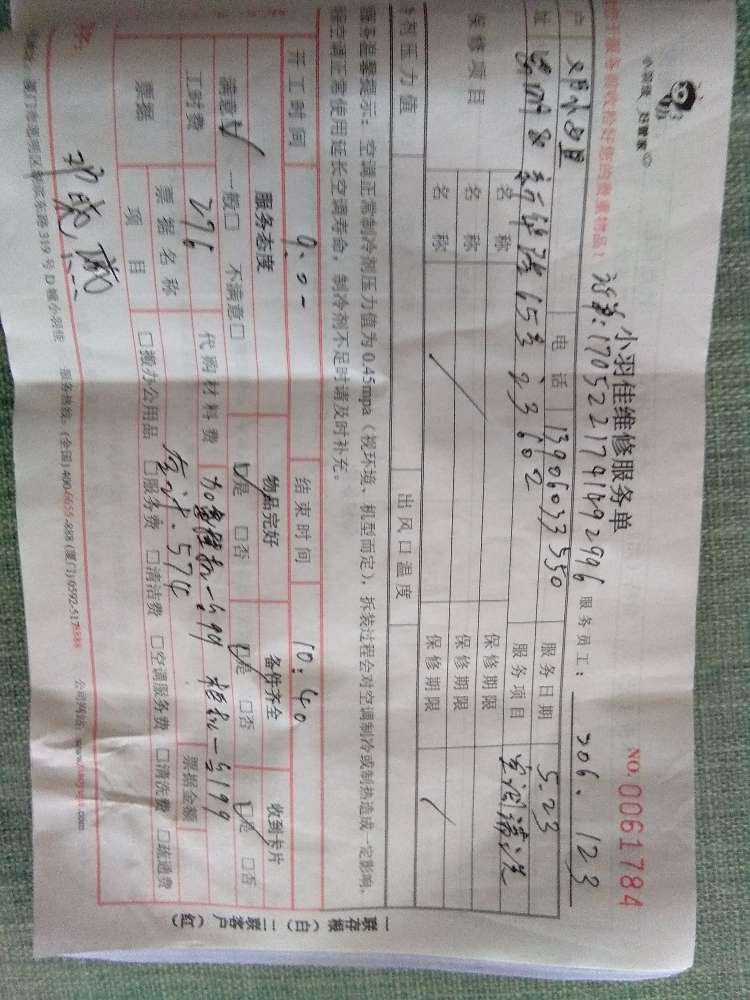 小羽佳 好管家
小羽佳维修服务单
NO.0061784
服务和收拾好您的贵重物品！
1705221741492996 服务员工：206. 123
户 邓小姐 电话 13906033550 服务日期 5.23
址 15号 602 服务项目 空调清洗
保修项目 名称 保修期限
名称 保修期限
名称 保修期限
冷剂压力值 出风口温度
服务温馨提示：空调正常制冷剂压力值为0.45mpa（视环境、机型而定），拆装过程会对空调制冷或制热造成一定影响，
空调正常使用延长空调寿命，制冷剂不足时请及时补充。
开工时间 9:01 结束时间 10:40
服务态度 物品完好 备件齐全 收到卡片
满意☑ 一般□ 不满意□ ☑是 □否 ☑是 □否 ☑是 □否
工时费 276 代购材料费 199
票据 票据名称 合计:574 票据金额
项目 □搬办公用品 □服务费 □清洁费 □空调服务费 □清洗费 □疏通费
319号D幢小羽佳 服务热线：(全国)400-6655-888 (厦门)0592-5178888 公司网站：www.
一联存根（白）二联客户（红）